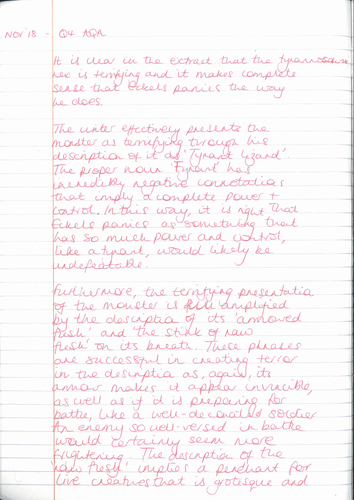 Nov 18 - Q4 AQA
It is clear in the extract that the tyrannosaurus
rex is terrifying and it makes complete
sense that Eckels panics the way
he does.
The writer effectively presents the
monster as terrifying through his
description of it as 'Tyrant Lizard'.
The proper noun 'Tyrant' has
incredibly negative connotations
that imply a complete power +
control. In this way, it is right that
Eckels panics as something that
has so much power and control,
like a tyrant, would likely be
undefeatable.
Furthermore, the terrifying presentation
of the monster is amplified
by the description of its 'armoured
flesh' and 'the stink of raw
flesh' on its breath. These phrases
are successful in creating terror
in the description as, again, its
armour makes it appear invincible,
as well as if it is preparing for
battle, like a well-decorated soldier.
An enemy so well-versed in battle
would certainly seem more
frightening. The description of the
'raw flesh' implies a penchant for
live creatures that is grotesque and